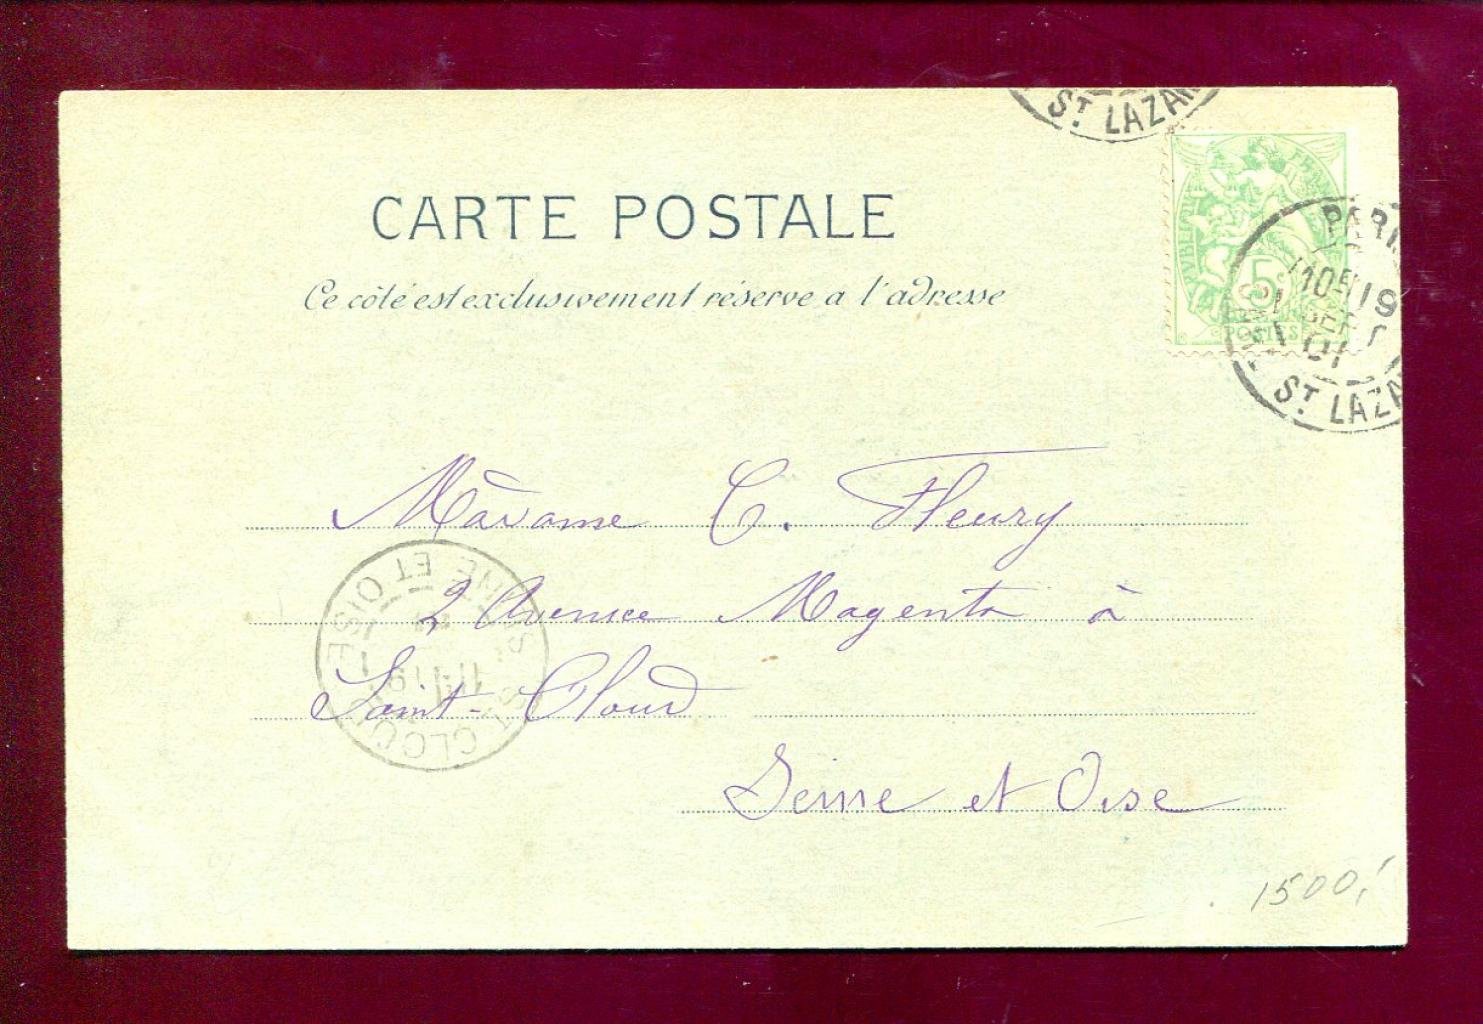 ST LAZAR
CARTE POSTALE
Ce côté est exclusivement réservé a l'adresse
PARI
5c
POSTES
19
01
ST LAZA
Madame C. Fleury
2 Avenue Magenta à
Saint-Cloud
Seine et Oise
ST CLOUD
SEINE ET OISE
1500